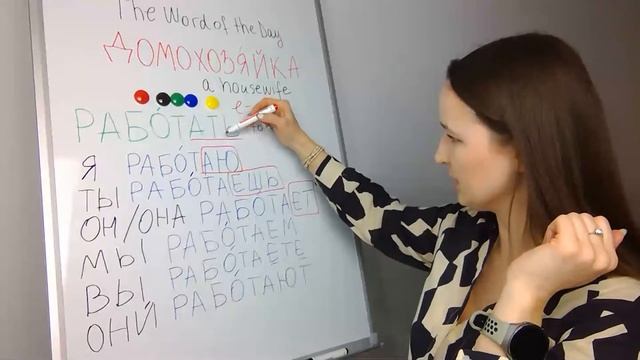 The Word of the Day
ДОМОХОЗЯ́ЙКА
a housewife
РАБО́ТАТЬ
Я РАБО́ТАЮ
ТЫ РАБО́ТАЕШЬ
ОН/ОНА РАБО́ТАЕТ
МЫ РАБО́ТАЕМ
ВЫ РАБО́ТАЕТЕ
ОНИ́ РАБО́ТАЮТ